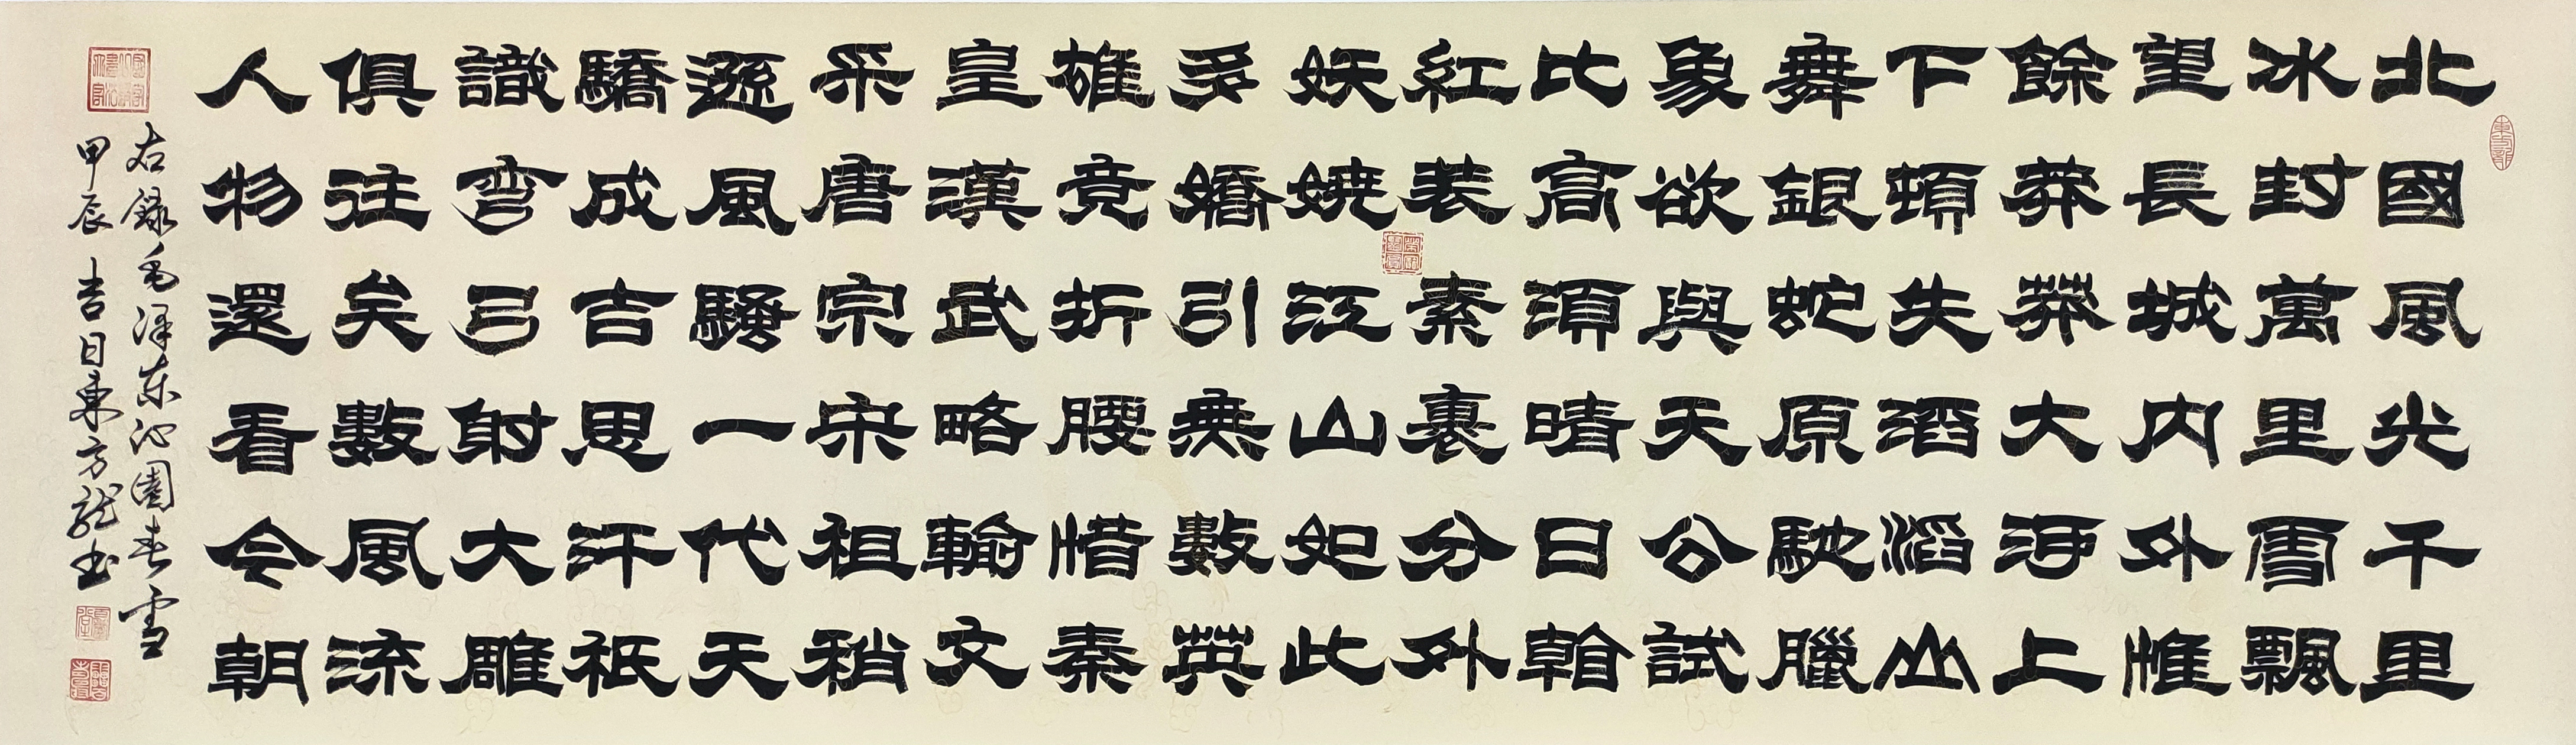 北國風光千里
冰封萬里雪飄
望長城内外惟
餘莽莽大河上
下頓失滔滔山
舞銀蛇原馳臘
象欲與天公試
比高須晴日看
紅裝素裹分外
妖嬈江山如此
多嬌引無數英
雄竟折腰惜秦
皇漢武略輸文
采唐宗宋祖稍
遜風騷一代天
驕成吉思汗祇
識彎弓射大雕
俱往矣數風流
人物還看今朝
右錄毛澤东沁園春雪
甲辰吉日東方龍书